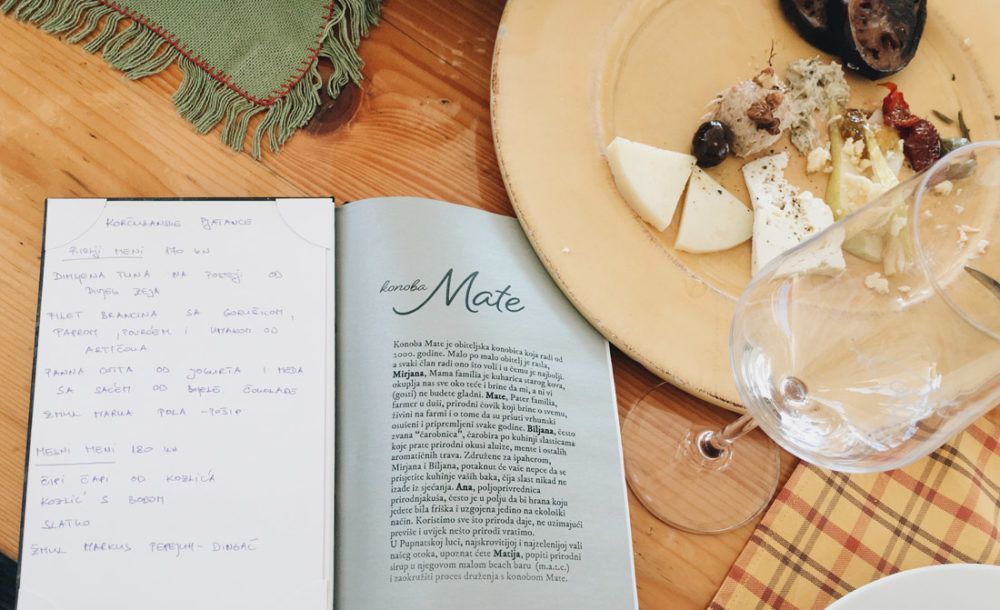 KORČULANSKE PJATANCE
RIBLJI MENI 170 KN
DIMLJENA TUNA NA POSTELJI OD
DIVJEG ZEJA
FILET BRANCINA SA GORUŠICOM,
PAPROM, POVRĆEM I UMAKOM OD
ARTIČOKA
PANNA COTTA OD JOGURTA I MEDA
SA SAĆEM OD BIJELE ČOKOLADE
ŽMUL MARKA POLA - POŠIP
MESNI MENI 180 KN
ČIPI ČAPI OD KOZLIĆA
KOZLIĆ S BOBOM
SLATKO
ŽMUL MARKUS - DINGAČ
konoba Mate
Konoba Mate je obiteljska konobica koja radi od
2000. godine. Malo po malo obitelj je rasla,
a svaki član radi ono što voli i u čemu je najbolji.
Mirjana, Mama familia je kuharica starog kova,
okuplja nas sve oko teće i brine da mi, a ni vi
(gosti) ne budete gladni. Mate, Pater familia,
farmer u duši, prirodni čovik koji brine o svemu,
živini na farmi i o tome da su pršuti vrhunski
osušeni i pripremljeni svake godine. Biljana, često
zvana "čarobnica", čarobira po kuhinji slasticama
koje prate prirodni okusi aluize, mente i ostalih
aromatičnih trava. Združene za špaherom,
Mirjana i Biljana, potaknut će vaše nepce da se
prisjetite kuhinje vaših baka, čija slast nikad ne
izađe iz sjećanja. Ana, poljoprivrednica
prirodnjakuša, često je u polju da bi hrana koju
jedete bila friška i uzgojena jedino na ekološki
način. Koristimo sve što priroda daje, ne uzimajući
previše i uvijek nešto prirodi vratimo.
U Pupnatskoj luci, najskrovitijoj i najzelenijoj vali
našeg otoka, upoznat ćete Matija, popiti prirodni
sirup u njegovom malom beach baru (m.a.t.e.)
i zaokružiti proces druženja s konobom Mate.